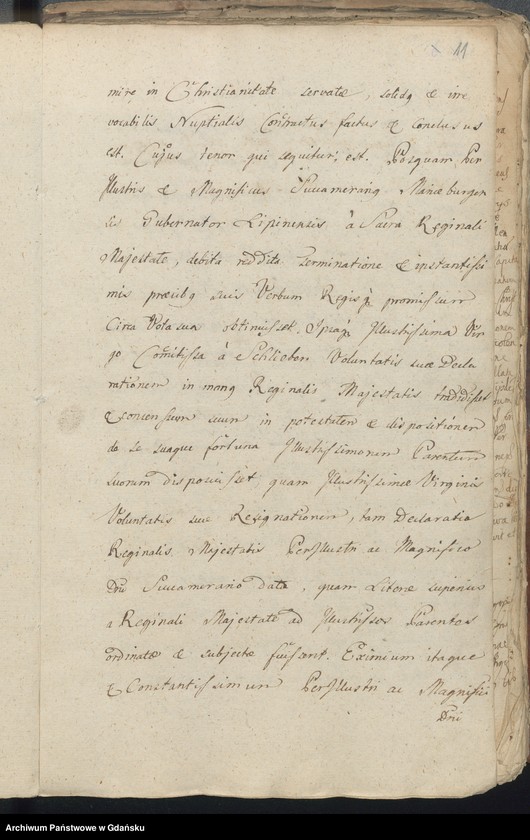 11
mire in Christianitate servatæ, solidq & irre
vocabilis Nuptialis Contractus factus & conclusus
est. Cujus tenor qui sequitur, est. Posquam Per
Jllustris & Magnificus Succamerariq Mariæburgen
sis Gubernator Lipinensis à Sacra Reginali
Majestate, debita reddita terminatione & instantissi
mis præcibq suis Verbum Regisq promissum
Circa Vota sua obtinuisset. Ipsaq Jllustrissima Vir
go Comitissa à Schlieben Voluntatis suæ Decla
rationem in manq Reginalis Majestatis tradidisset
& consensum suum in potestatem & dispositionem
de se suaque fortuna Jllustrissimorum Parentum
suorum disposuisset, quam Jllustrissimæ Virginis
Voluntatis suæ Resignationem, tam Declaratio
Reginalis Majestatis PerJllustri ac Magnifico
Dno Succamerario data, quam Literæ superius
a Reginali Majestate ad Jllustrissos Parentes
ordinatæ & subjectæ fuissent. Eximium itaque
& Constantissimum PerJllustri ac Magnifici
Dni
Archiwum Państwowe w Gdańsku